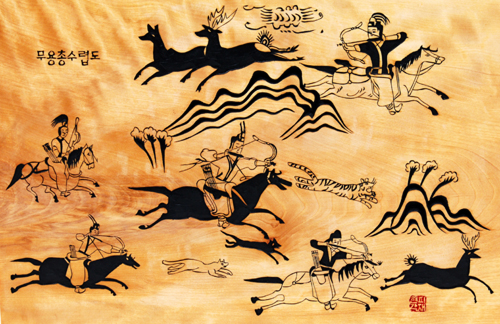 무용총수렵도